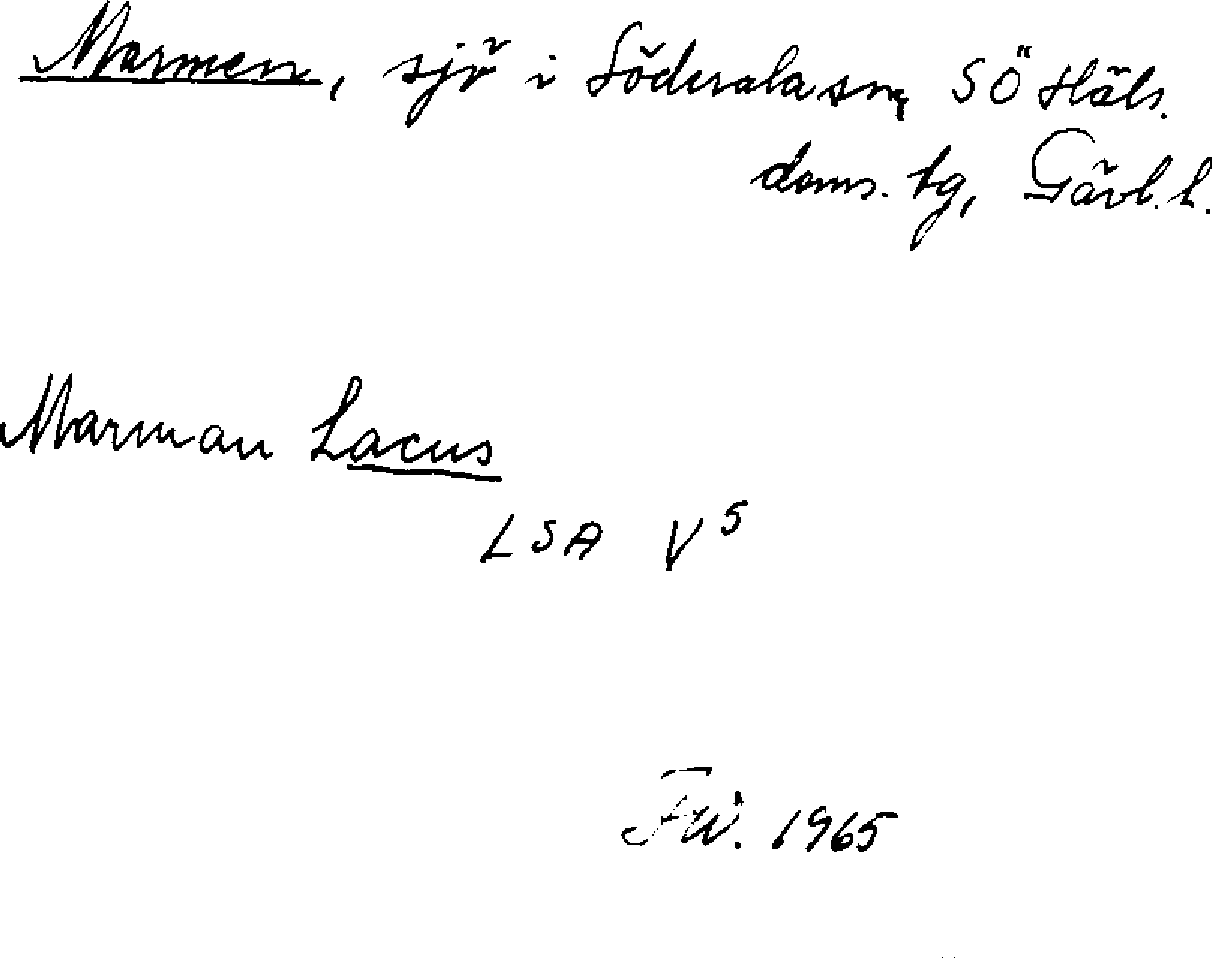 Marmen, sjö i Söderala sn, SÖ Häls.
doms. tg, Gävl. l.
Marman Lacus
LSA V⁵
1965